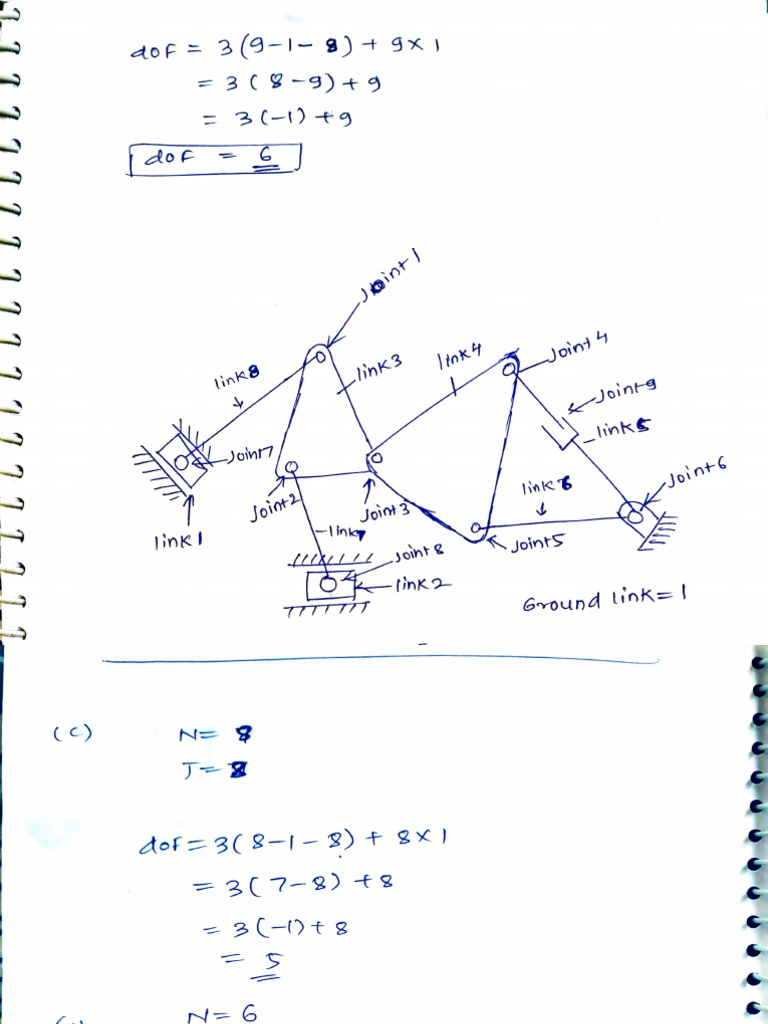 dof = 3(9-1-8) + 9×1
= 3(8-9)+9
= 3(-1)+9
dof = 6
Joint1
link8
link3
link4
Joint4
Joint9
link5
Joint7
Joint6
link6
Joint2
Joint3
link7
Joint5
link1
Joint8
link2
Ground link=1
(C) N= 8
J= 8
dof=3(8-1-8) + 8×1
=3(7-8) +8
= 3(-1)+8
= 5
N=6